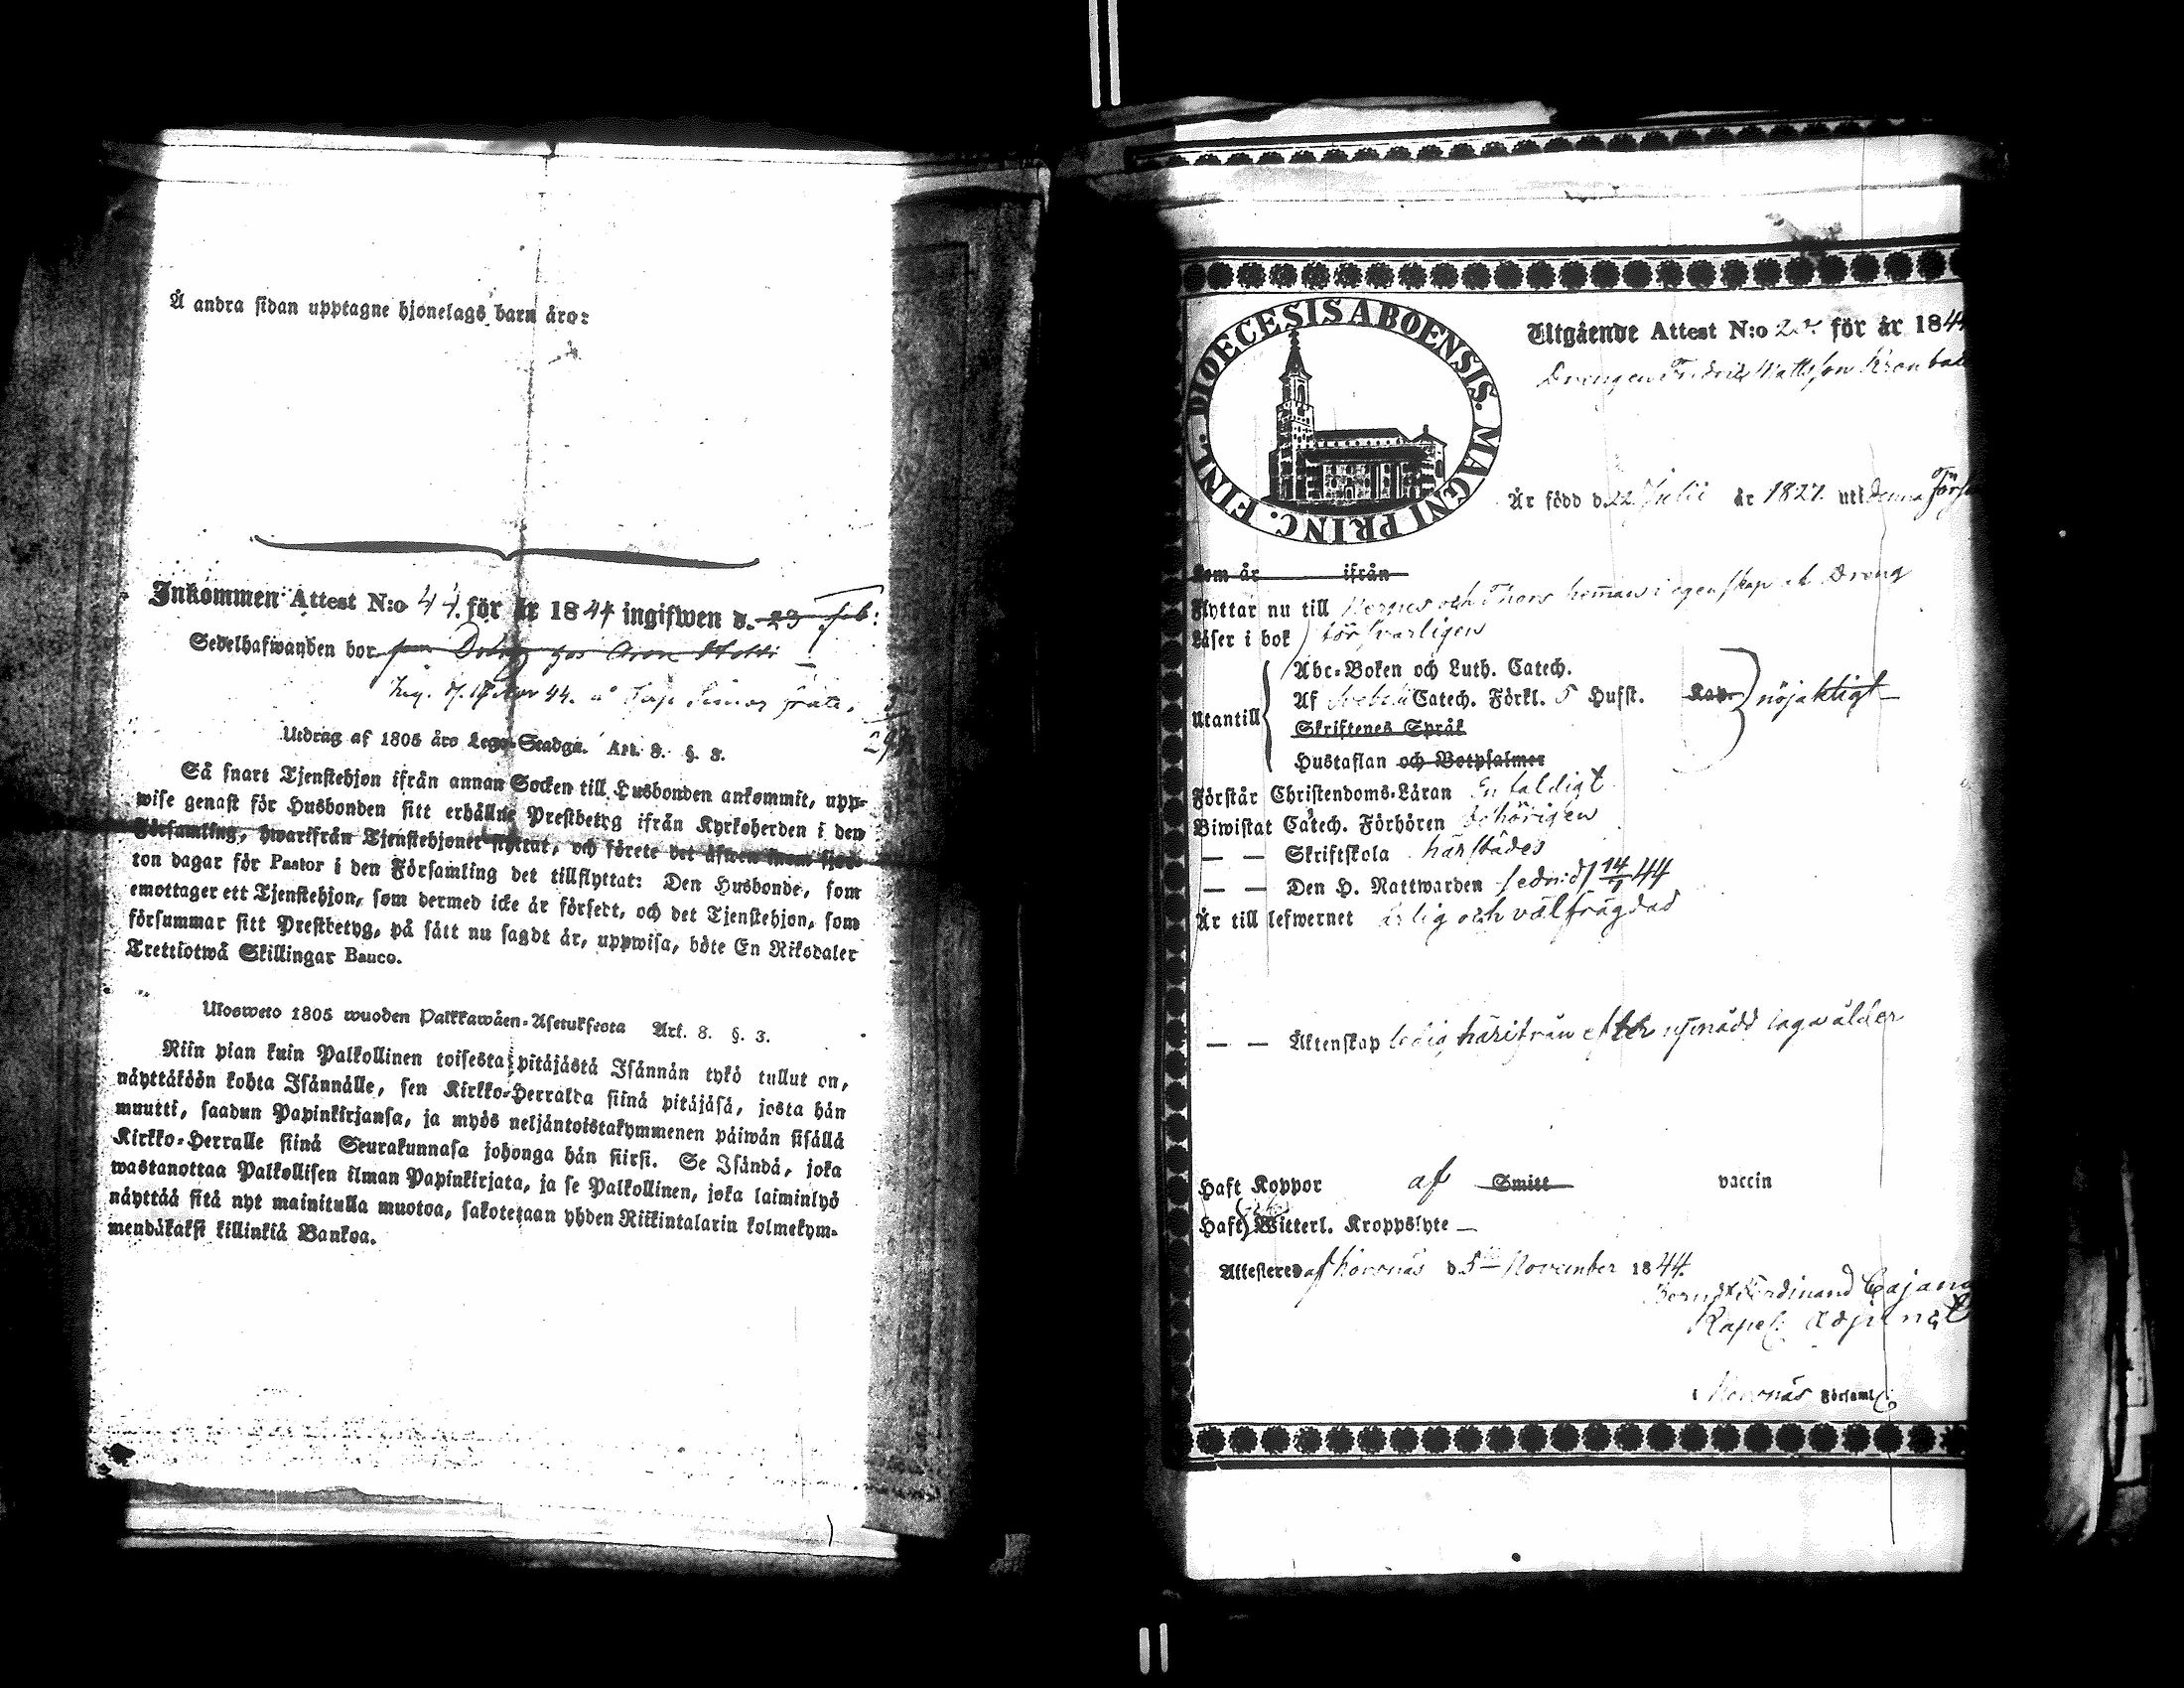 Å andra sidan upptagne hjonelags barn äro:
Inkommen Attest N:o 44 för år 1844 ingifwen d. 23 feb:
Sedelhafwanden bor hos Aron
44.
Utdrag af 1805 års Lego-Stadga. Art. 8. §. 3.
Så snart Tjenstehjon ifrån annan Socken till Husbonden ankommit, upp-
wise genast för Husbonden sitt erhållne Prestbetyg ifrån Kyrkoherden i den
Församling, hwarifrån Tjenstehjonet flyttat, och förete det äfwen inom fjor-
ton dagar för Pastor i den Församling det tillflyttat: Den Husbonde, som
emottager ett Tjenstehjon, som dermed icke är försedt, och det Tjenstehjon, som
försummar sitt Prestbetyg, på sätt nu sagdt är, uppwisa, böte En Riksdaler
Trettiotwå Skillingar Banco.
Ulosweto 1805 wuoden Palkkawäen-Asetuksesta Art. 8. §. 3.
Niin pian kuin Palkollinen toisesta pitäjästä Isännän tykö tullut on,
näyttäköön kohta Isännälle, sen Kirkko-Herralda siinä pitäjäsä, josta hän
muutti, saadun Papinkirjansa, ja myös neljäntoistakymmenen päiwän sisällä
Kirkko-Herralle siinä Seurakunnasa johonga hän siirsi. Se Isändä, joka
wastanottaa Palkollisen ilman Papinkirjata, ja se Palkollinen, joka laiminlyö
näyttää sitä nyt mainitulla muotoa, sakotetaan yhden Riikintalarin kolmekym-
mendäkaksi killinkiä Bankoa.
DIOECESIS ABOENSIS. MAGNI PRINC. FINL.
Utgående Attest N:o för år 1844
Drengen Fredrik Mattsson
Är född d. 22 Julii år 1827. uti denna
Kom år ifrån
Flyttar nu till och Thors heman i egenskap af Dreng
Läser i bok försvarligen
Abc-Boken och Luth. Catech.
Af Svebelii Catech. Förkl. 5 Hufst. Kap. nöjaktigt
Utantill
Skriftenes Språk
Hustaflan och Botpsalmer
Förstår Christendoms-Läran Enfaldigt
Biwistat Catech. Förhören behörigen
— — Skriftskola härstädes
— — Den H. Nattwarden sednid 14/7 44
Är till lefwernet ärlig och välfrägdad
— — Äktenskap ledig härifrån efter uppnådd laga ålder
Haft Koppor af Smitt vaccin
Haft Witterl. Kroppslyte —
Attesteras af Hvornäs d. 5 November 1844.
Ferdinand Cajan
Kapel. Adjunct
i Församl.